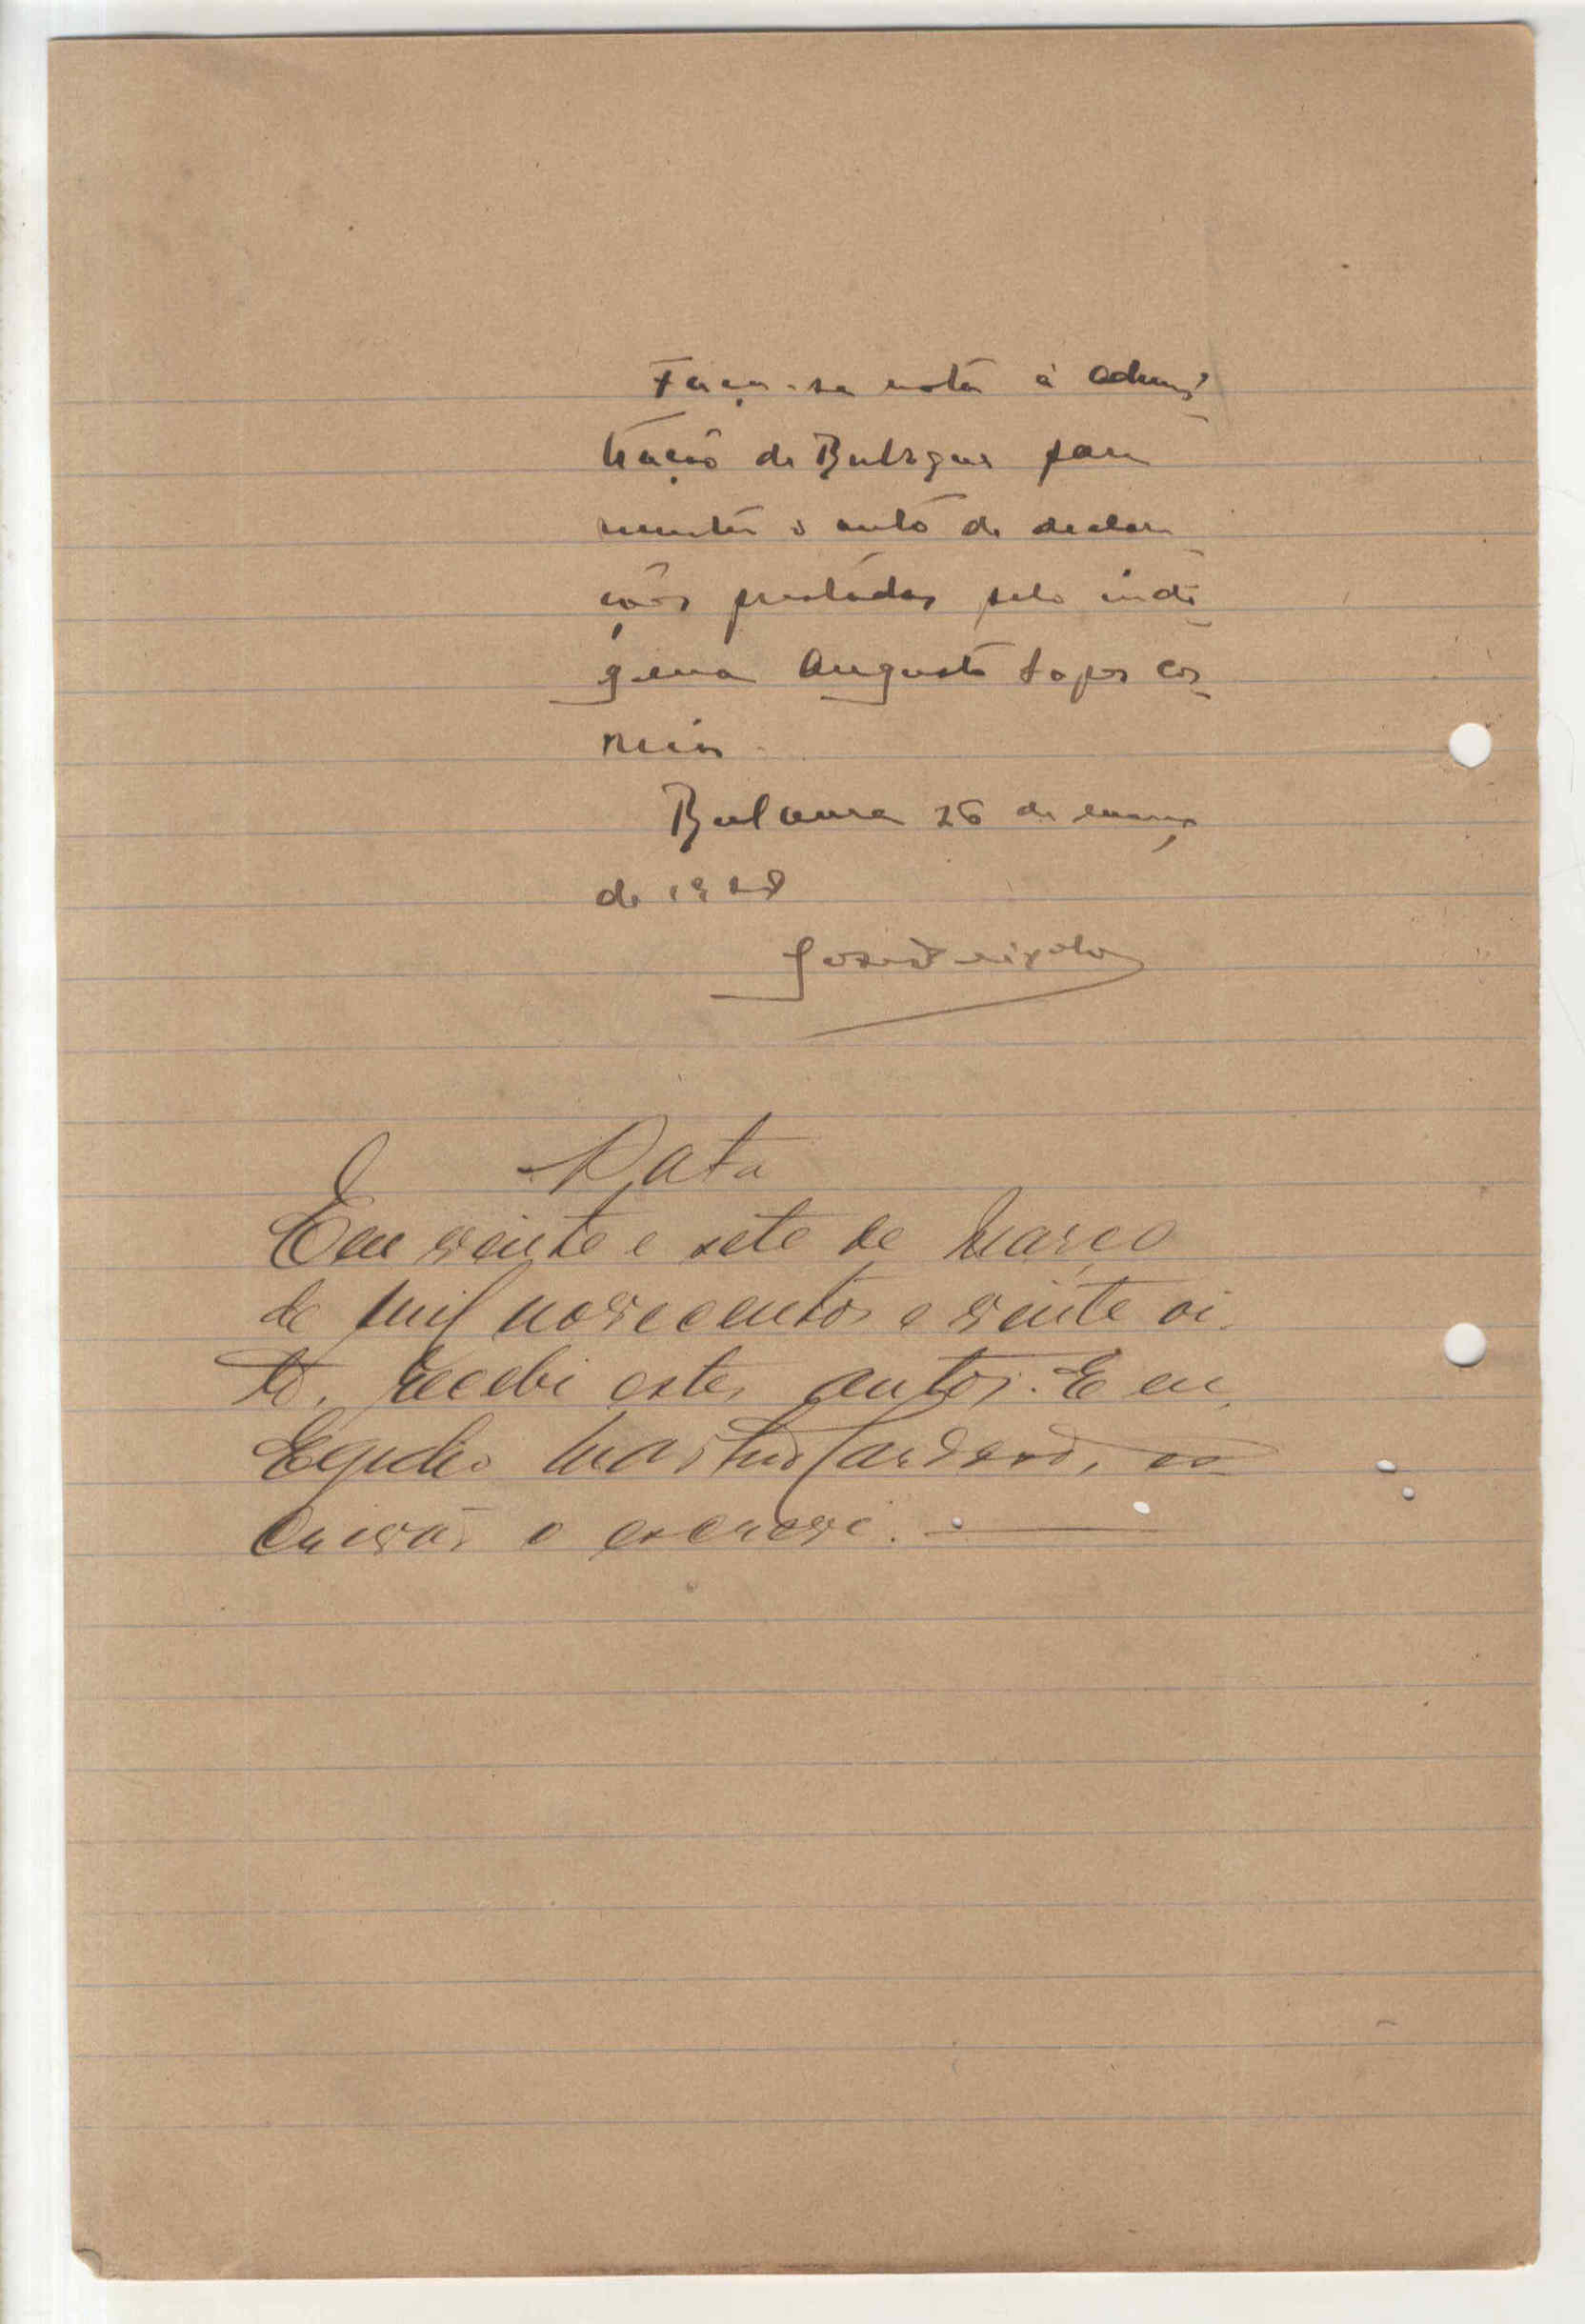 Faça-se nota á Admnis-
tração de Buba para
remeter o auto de declara-
ções prestadas pelo indi-
gena Augusto Lopes Cor-
reia.
Bolama 26 de março
de 1928
Data
Em vinte e sete de Março
de mil novecentos e vinte oi-
to, recebi estes autos. E eu,
Egidio Martins Cardoso, es-
crivão o escrevi.